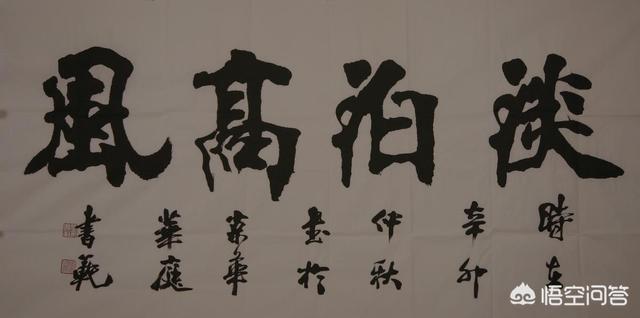 淡泊高風
時在
辛卯
仲秋
書於
京華
華庭
悟空问答